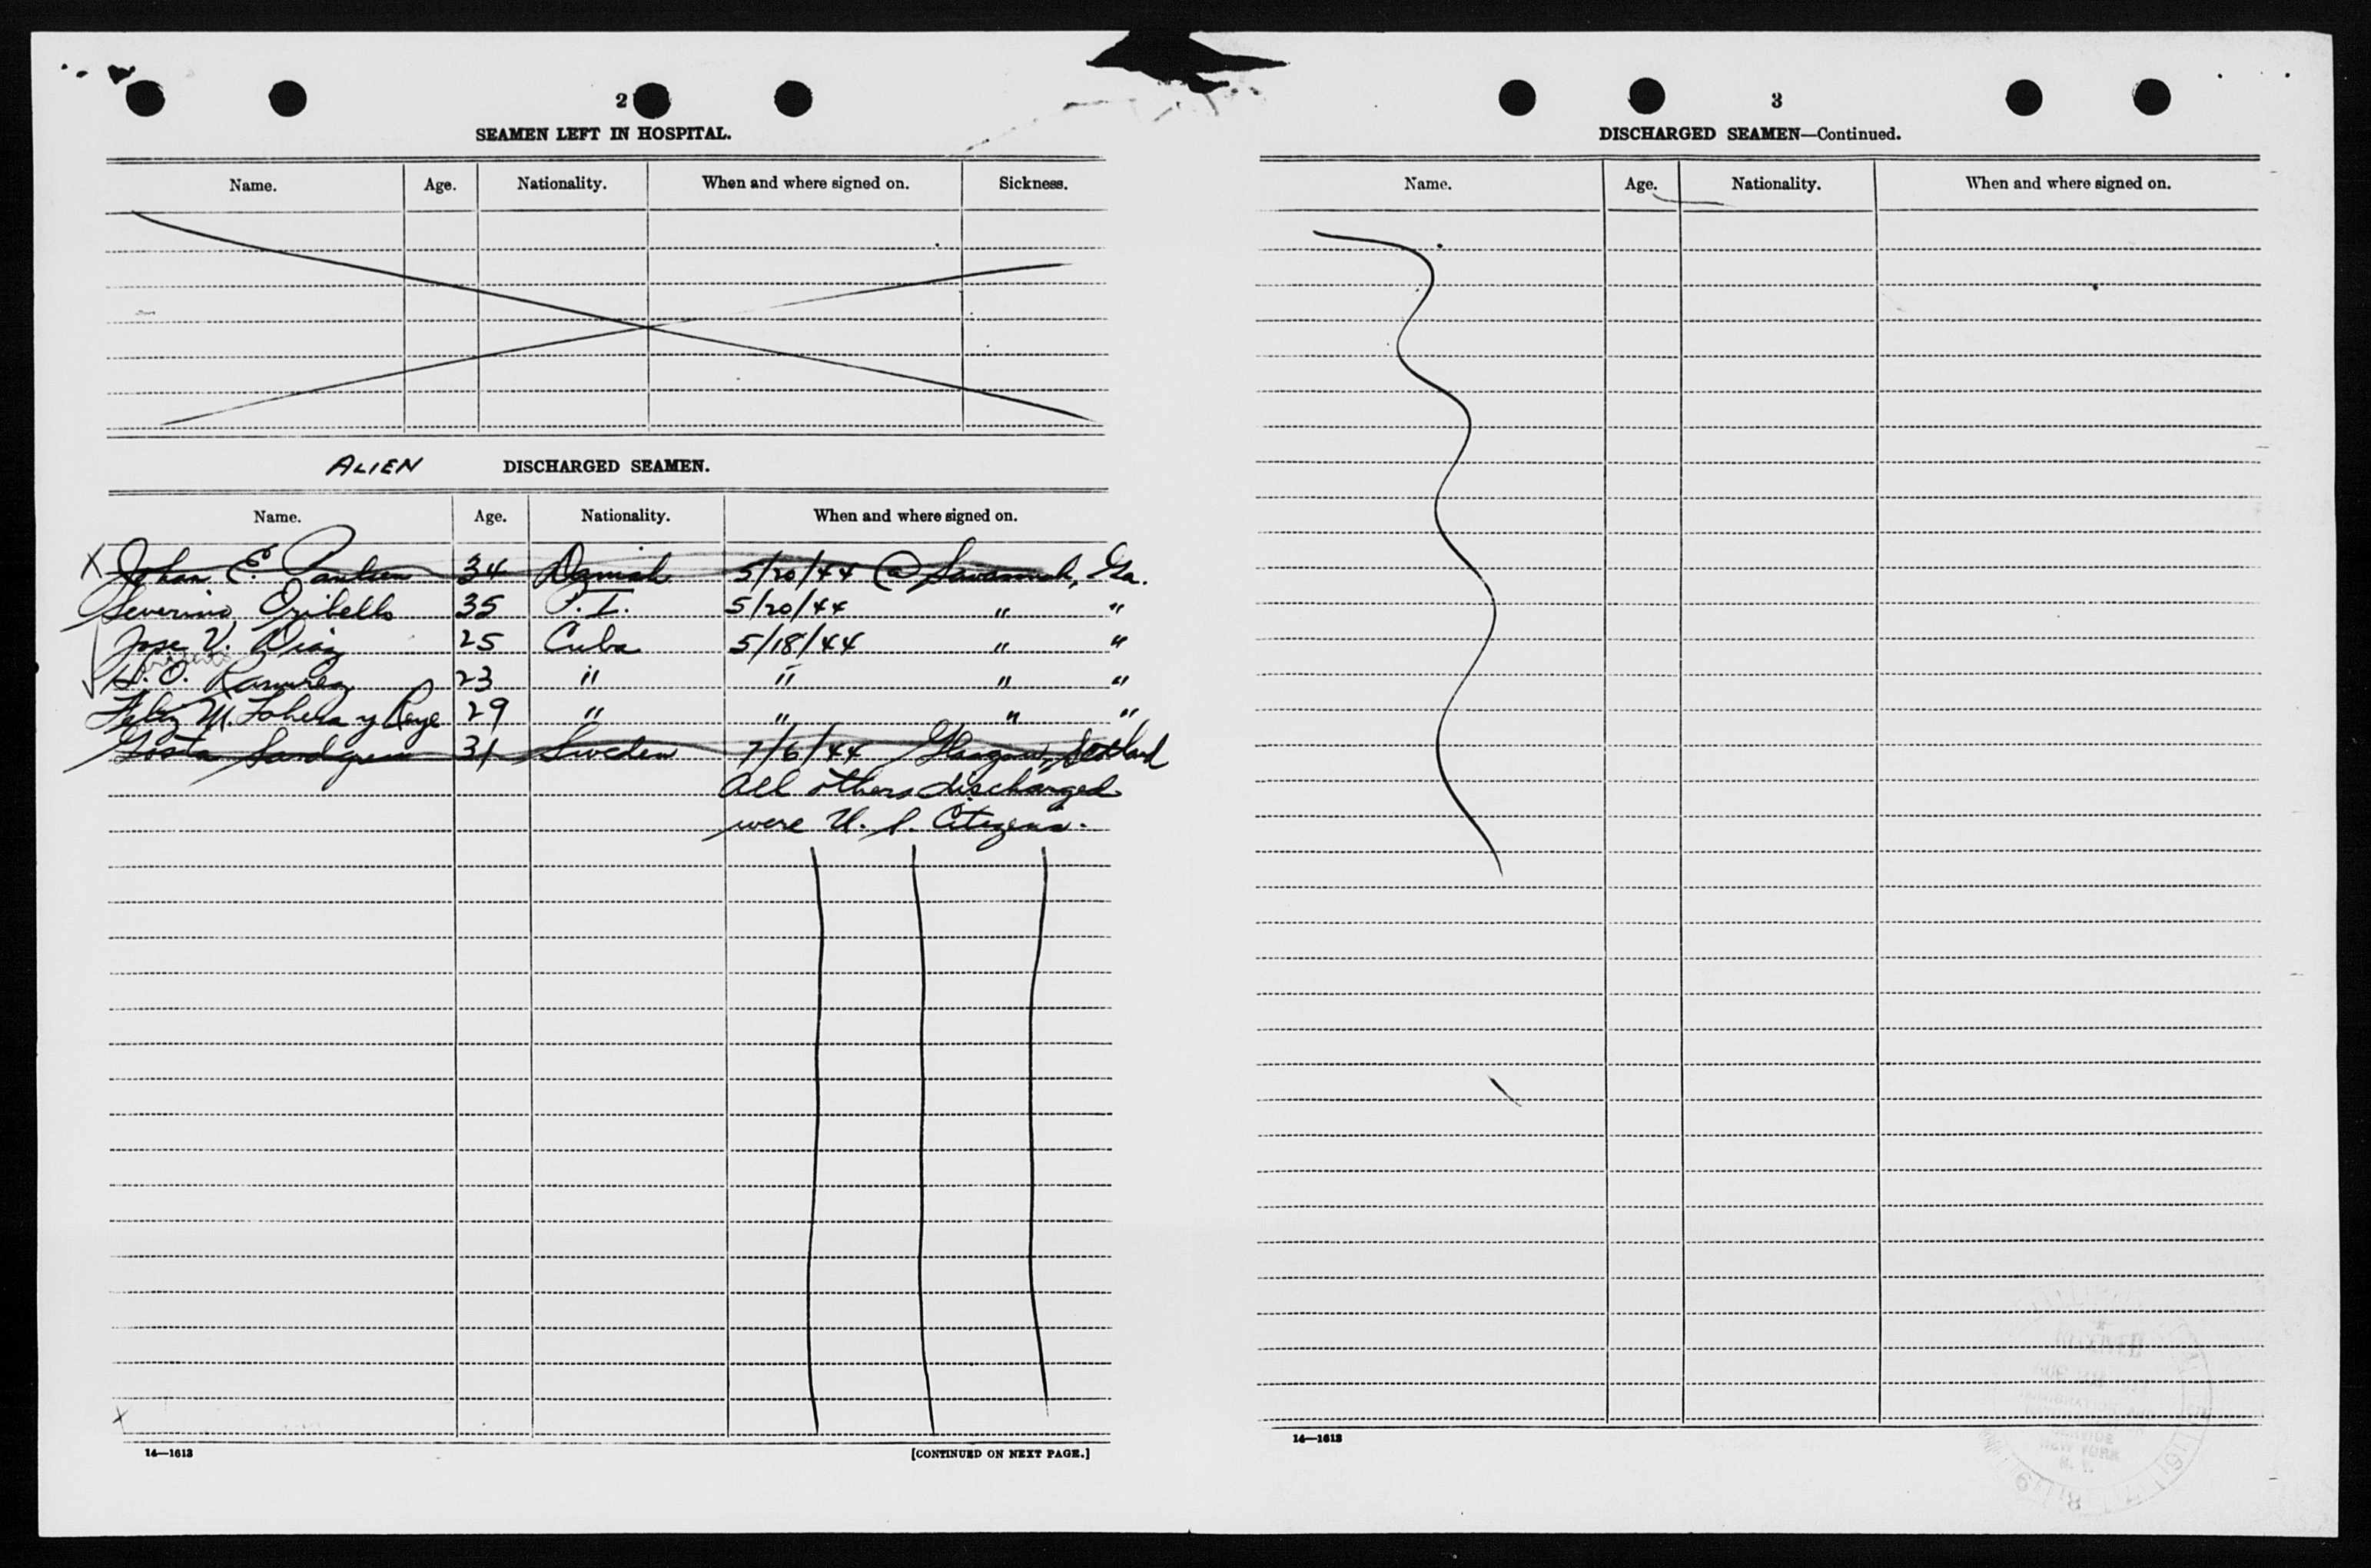 2
SEAMEN LEFT IN HOSPITAL.
Name. Age. Nationality. When and where signed on. Sickness.
ALIEN DISCHARGED SEAMEN.
Name. Age. Nationality. When and where signed on.
X Johan E. Paulsen 34 Danish 5/20/44 @ Savannah, Ga.
Severino Oribello 35 P.I. 5/20/44 " "
Jose V. Diaz 25 Cuba 5/18/44 " "
H. O. Ramirez 23 " " " "
M. y 29 " " " "
Gosta Sandgren 31 Sweden 7/6/44 Glasgow, Scotland
All others discharged
were U. S. Citizens.
14—1613
[CONTINUED ON NEXT PAGE.]
3
DISCHARGED SEAMEN—Continued.
Name. Age. Nationality. When and where signed on.
14—1613
SERVICE
NEW YORK
N. Y.